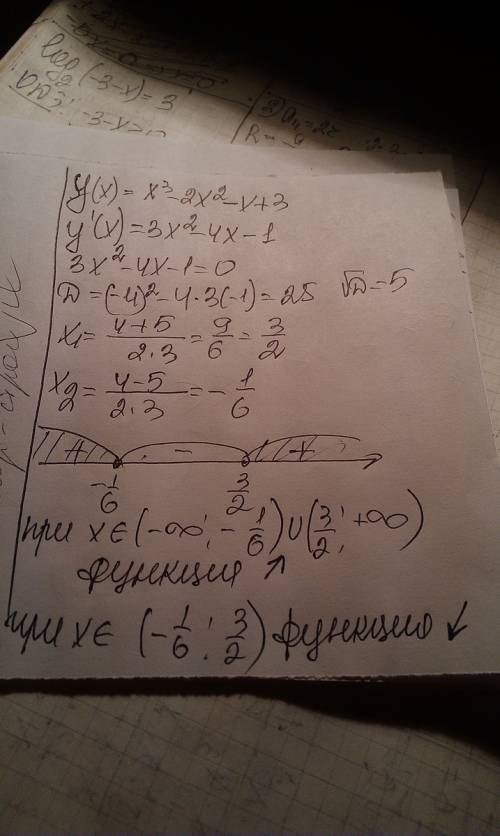 log₂(-3-x)=3
-3-x>0
y(x)=x³-2x²-x+3
y'(x)=3x²-4x-1
3x²-4x-1=0
D=(-4)²-4·3(-1)=25 √D=5
x₁=\frac{4+5}{2·3}=\frac{9}{6}=\frac{3}{2}
x₂=\frac{4-5}{2·3}=-\frac{1}{6}
+ - +
-\frac{1}{6} \frac{3}{2}
при x∈(-∞; -\frac{1}{6})∪(\frac{3}{2}; +∞)
функция ↗
при x∈(-\frac{1}{6}; \frac{3}{2}) функция ↙